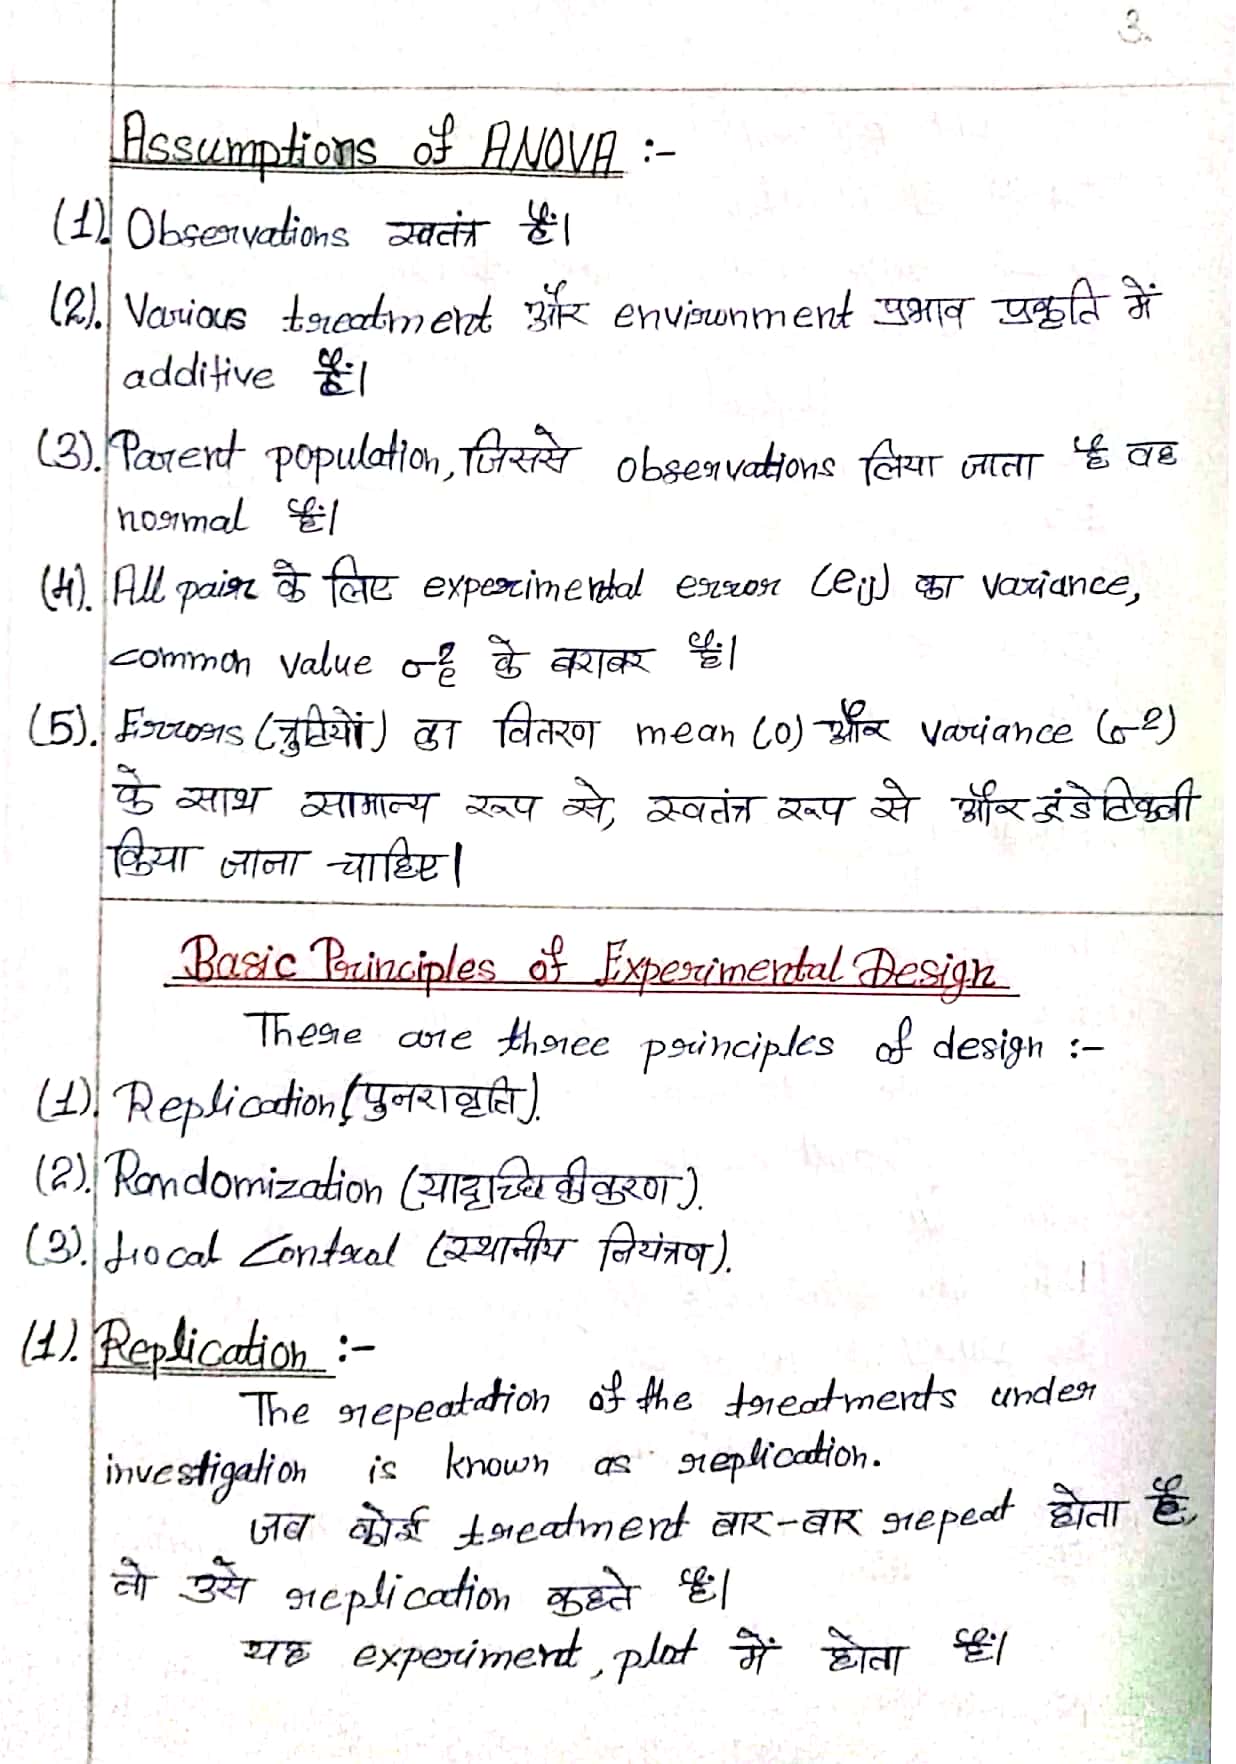 3.
Assumptions of ANOVA :-
(1). Observations स्वतंत्र हैं।
(2). Various treatment और environment प्रभाव प्रकृति में
additive हैं।
(3). Parent population, जिससे observations लिया जाता है वह
normal हैं।
(4). All pair के लिए experimental error (eij) का variance,
common value σ²e के बराबर हैं।
(5). Errors (त्रुटियों) का वितरण mean (0) और variance (σ2)
के साथ सामान्य रूप से, स्वतंत्र रूप से और इंडेटिकली
किया जाना चाहिए।
Basic Principles of Experimental Design
There are three principles of design :-
(1). Replication (पुनरावृति).
(2). Randomization (यादृच्छिकीकरण).
(3). Local Control (स्थानीय नियंत्रण).
(1). Replication :-
The repeatation of the treatments under
investigation is known as replication.
जब कोई treatment बार-बार repeat होता है,
तो उसे replication कहते हैं।
यह experiment, plot में होता हैं।